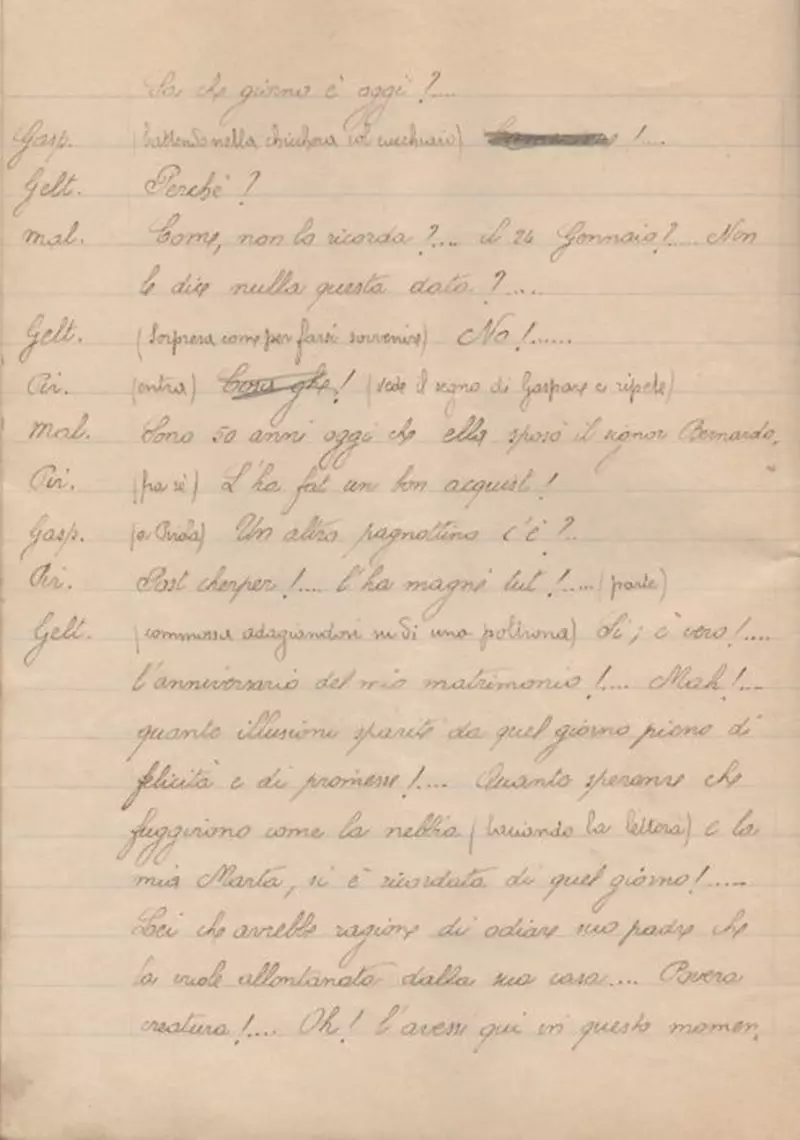 Sa che giorno è oggi?....
Gasp. (battendo nella chicchera col cucchiaio) !....
Gelt. Perchè?
Mal. Come, non lo ricorda?.... il 24 Gennaio?.... Non
le dice nulla questa data?....
Gelt. (Sorpresa come per farsi sovvenire) No!......
Pir. (entra) Cosa ghe! (vede il segno di Gaspare e ripete)
Mal. Sono 50 anni oggi che ella sposò il signor Bernardo.
Pir. (fra sè) L'ha fat un bon acquist!
Gasp. (a Pirola) Un altro pagnottino c'è?..
Pir. Post cherper!.... l'ha magné tut!..... (parte)
Gelt. (commossa adagiandosi su di una poltrona) Si; è vero!....
l'anniversario del mio matrimonio!.... Mah!....
quante illusioni sparite da quel giorno pieno di
felicità e di promesse!.... Quante speranze che
fuggirono come la nebbia (baciando la lettera) e la
mia Marta, si è ricordata di quel giorno!.....
Lei che avrebbe ragione di odiare suo padre che
la vuole allontanata dalla sua casa.... Povera
creatura!.... Oh! l'avessi qui in questo momen,